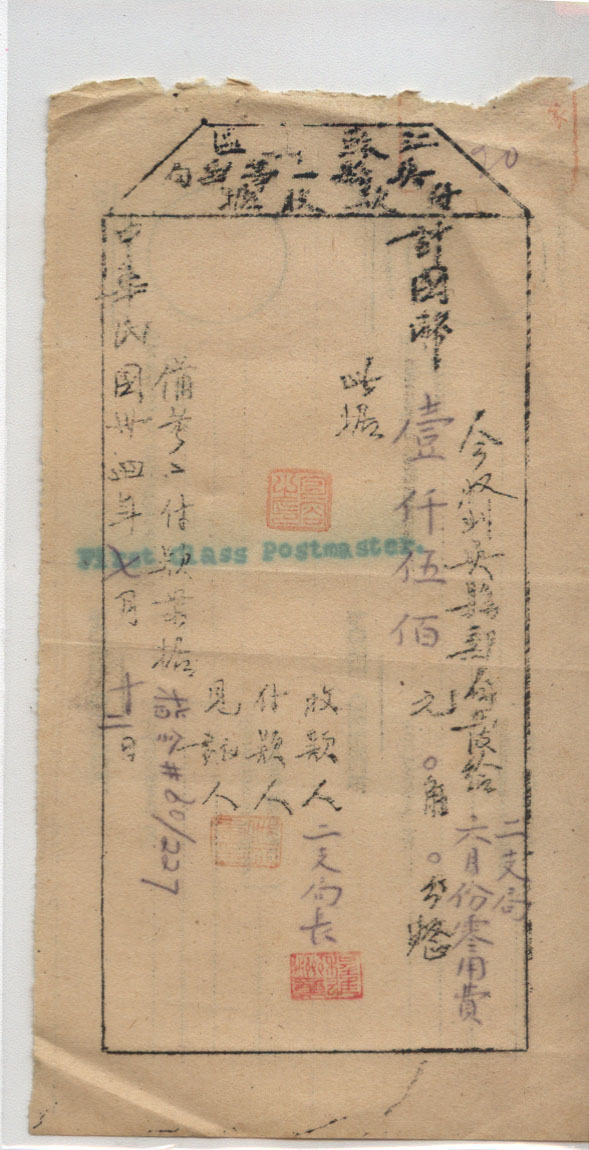 江蘇 區
吳縣一等郵局
付款收據
90
二支局
今收到吳縣郵局發給六月份零用費
計國幣壹仟伍佰元〇角〇分整
此據
收款人二支局長
付款人
見証人
First Class Postmaster.
備考:付款單據
中華民國卅四年七月十二日